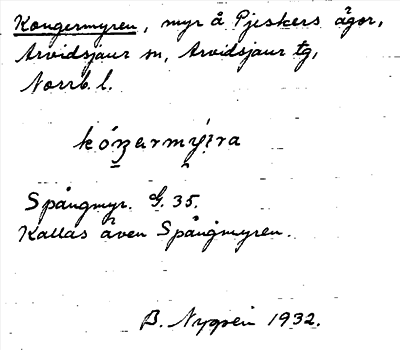 Kongermyren, myr å Pjeskers ägor,
Arvidsjaur sn, Arvidsjaur tg,
Norrb. l.
kóŋarmýra
Spångmyr. G. 35.
Kallas även Spångmyren.
B. 1932.